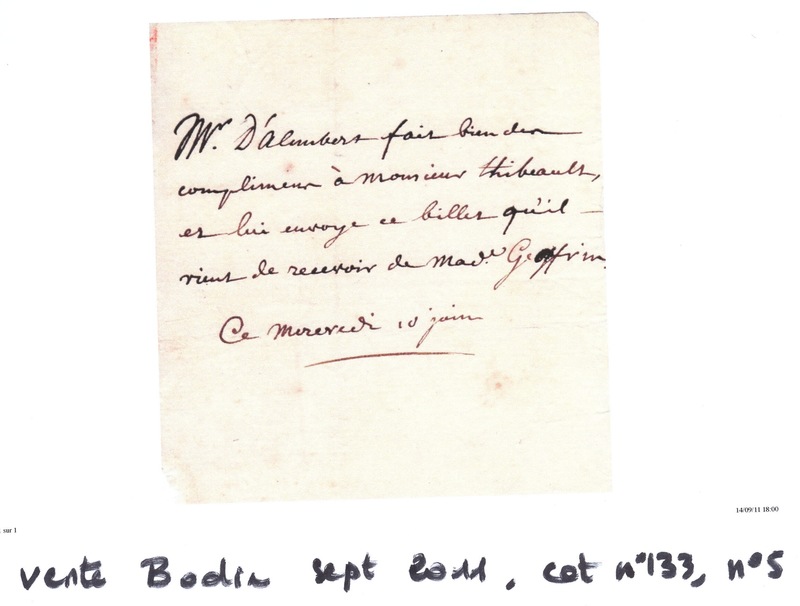 Mr. D'Alembert fait bien des
complimens à Monsieur thibeault,
et lui envoye ce billet qu'il
vient de recevoir de Made. Geoffrin.
Ce Mercredi 10 juin
14/09/11 18:00
sur 1
vente Bodin sept 2011, cat n°133, n°5